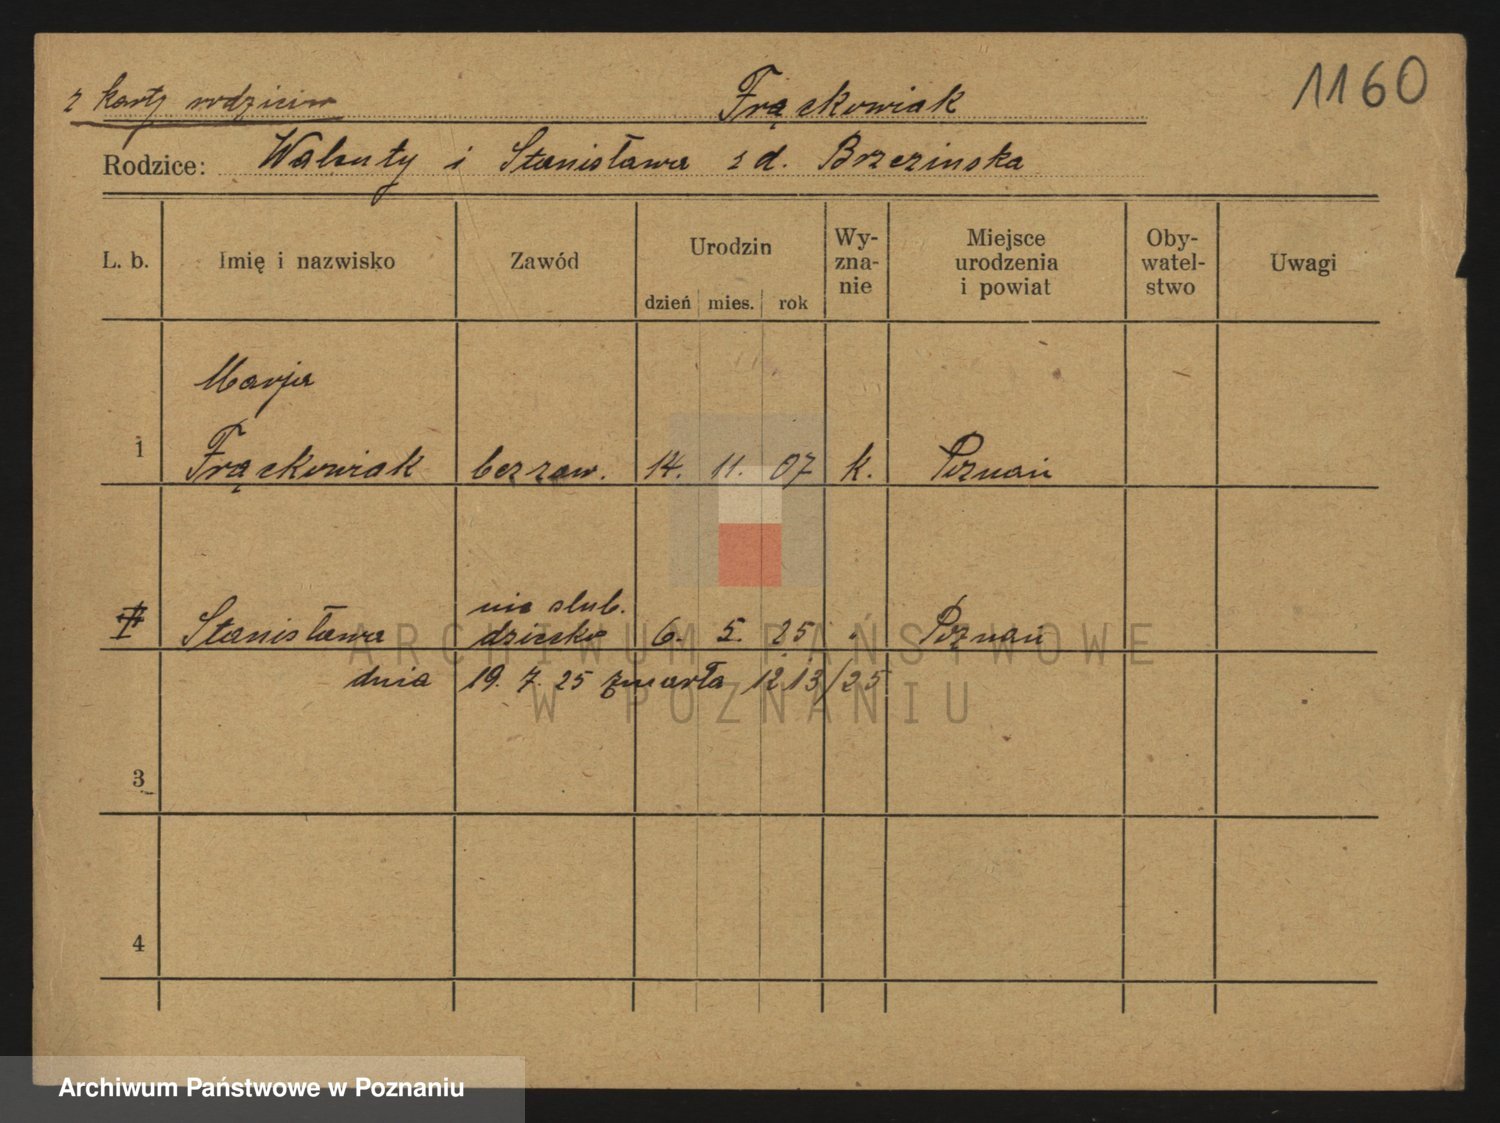 1160
z karty rodziców Frąckowiak
Rodzice: Walenty i Stanisława z d. Brzezinska
L. b. Imię i nazwisko Zawód Urodzin dzień mies. rok Wy-zna-nie Miejsce urodzenia i powiat Oby-watel-stwo Uwagi
Marja
1 Frąckowiak bez zaw. 14. 11. 07 k. Poznań
nie slub.
Stanisława dziecko 6. 5. 25 Poznań
dnia 19. 7. 25 zmarła 1213/25
3
4
ARCHIWUM PAŃSTWOWE
W POZNANIU
Archiwum Państwowe w Poznaniu